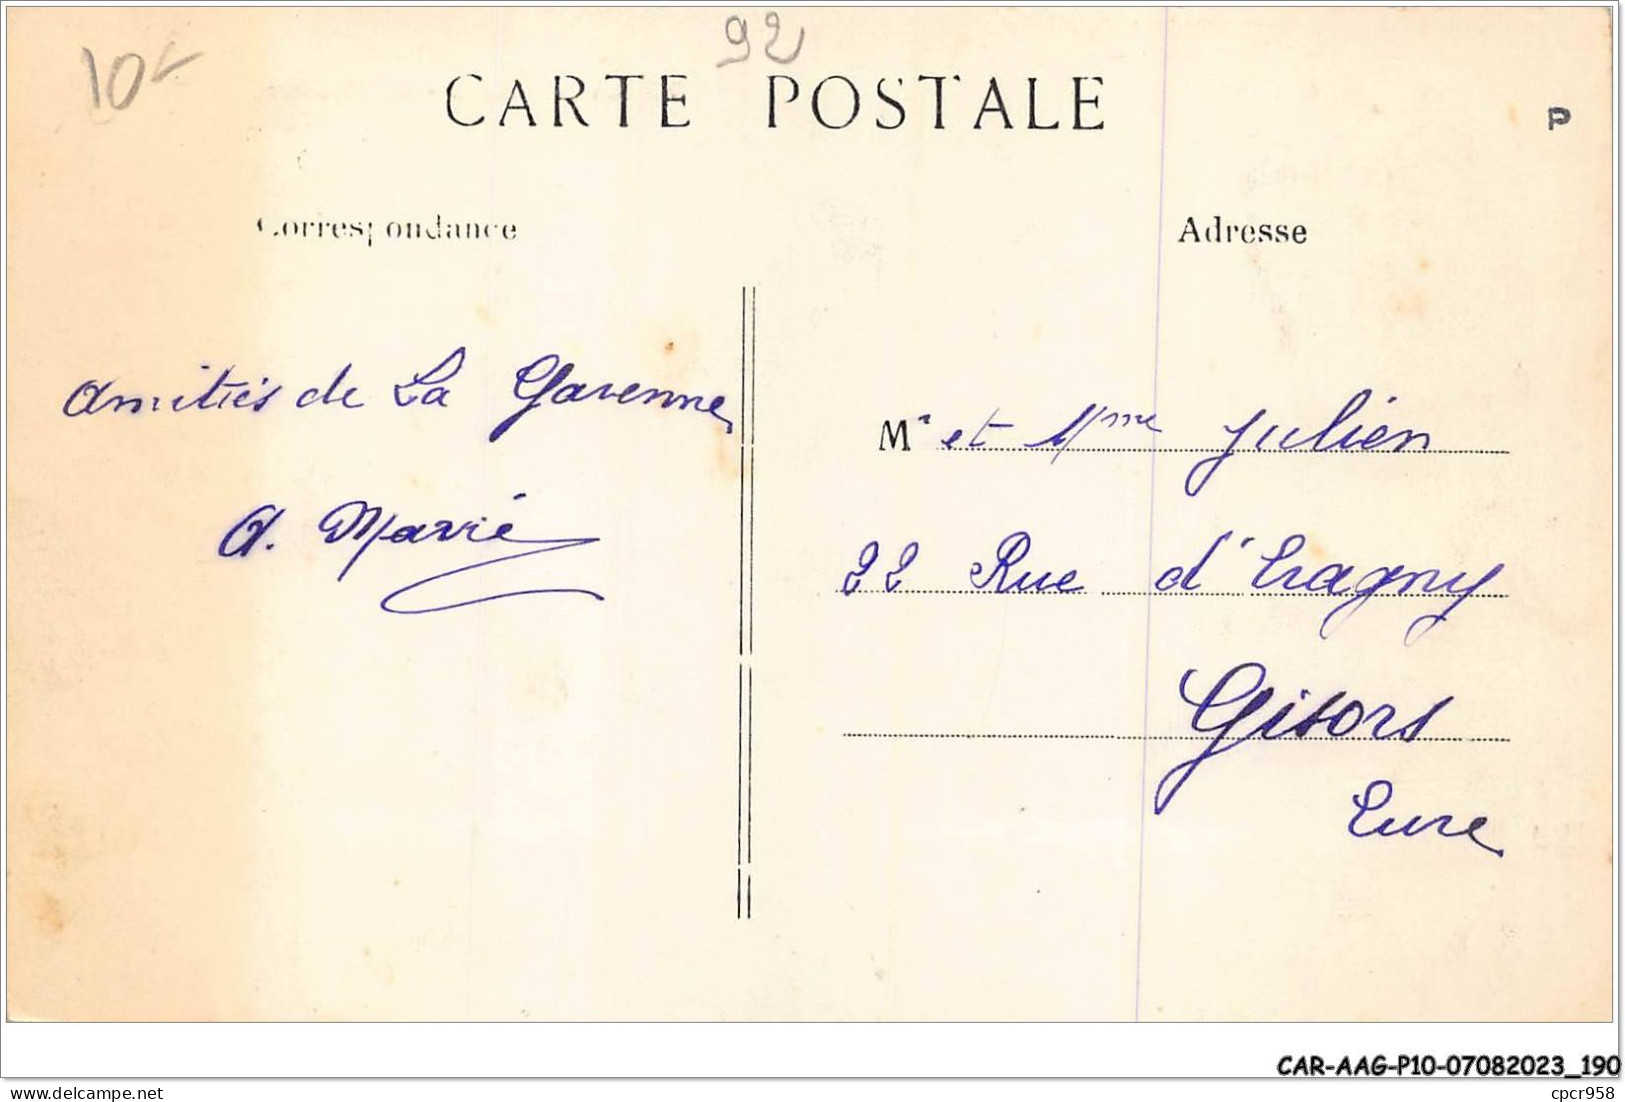 92
10-
CARTE POSTALE
P
Correspondance
Adresse
Amitiés de La Garenne
A. Marié
Mr et Mme Julien
22 Rue d'Eragny
Gisors
Eure
CAR-AAG-P10-07082023_190
cpcr958